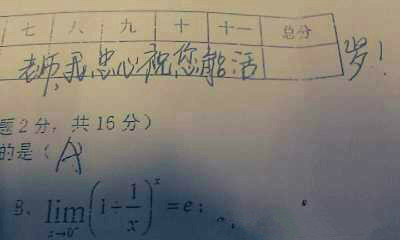 七 八 九 十 十一 总分
老师,我忠心祝您能活 岁!
题2分,共16分)
的是( A
B、lim x→0⁻ (1÷1/x)^x = e;